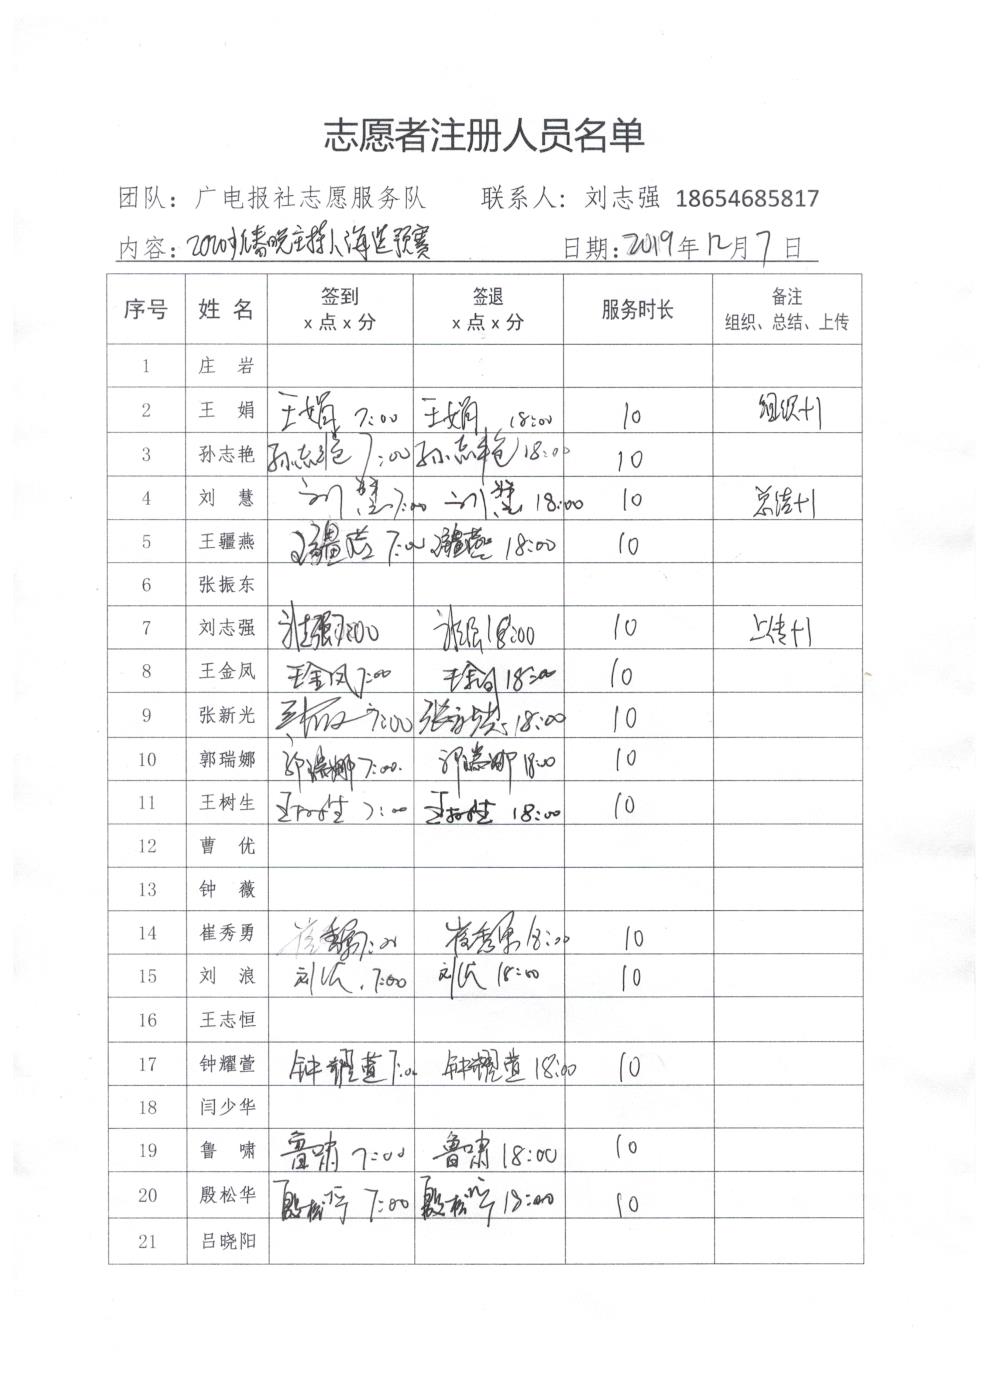 志愿者注册人员名单
团队：广电报社志愿服务队 联系人：刘志强 18654685817
内容：2020少儿春晚主持人海选预赛 日期：2019年12月7日
序号 姓名 签到 x点x分 签退 x点x分 服务时长 备注 组织、总结、上传
1 庄岩
2 王娟 王娟 7:00 王娟 18:00 10 组织+1
3 孙志艳 孙志艳 7:00 孙志艳 18:00 10
4 刘慧 刘慧 7:00 刘慧 18:00 10 总结+1
5 王疆燕 王疆燕 7:00 王疆燕 18:00 10
6 张振东
7 刘志强 刘志强 7:00 刘志强 18:00 10 上传+1
8 王金凤 王金凤 7:00 王金凤 18:00 10
9 张新光 7:00 张新光 18:00 10
10 郭瑞娜 郭瑞娜 7:00. 郭瑞娜 18:00 10
11 王树生 王树生 7:00 王树生 18:00 10
12 曹优
13 钟薇
14 崔秀勇 崔秀勇 7:00 崔秀勇 18:00 10
15 刘浪 刘浪 7:00 刘浪 18:00 10
16 王志恒
17 钟耀萱 钟耀萱 7:00 钟耀萱 18:00 10
18 闫少华
19 鲁啸 鲁啸 7:00 鲁啸 18:00 10
20 殷松华 殷松华 7:00 殷松华 18:00 10
21 吕晓阳